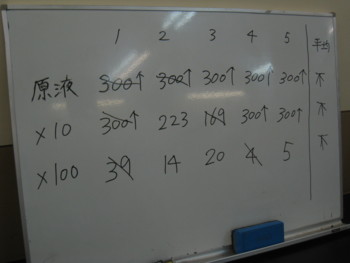 1 2 3 4 5 平均
原液 300↑ 300↑ 300↑ 300↑ 300↑ 不
×10 300↑ 223 169 300↑ 300↑ 不
×100 39 14 20 4 5 不